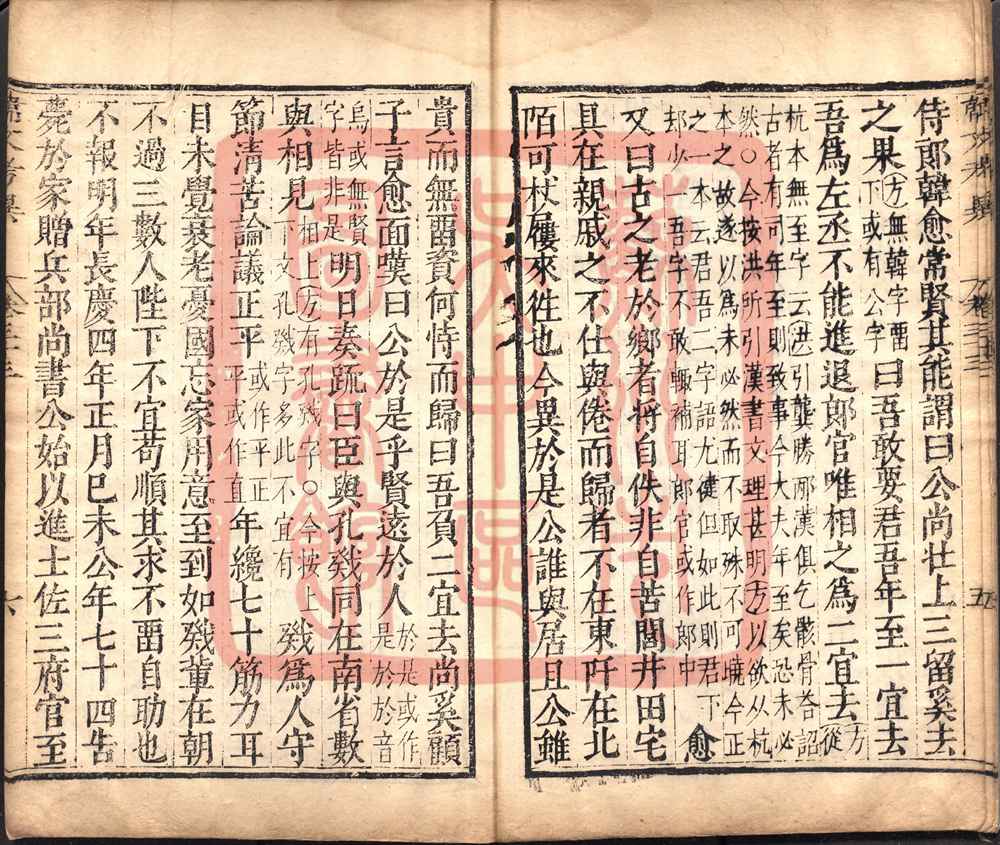 侍郎韓愈常賢其能謂曰公尚壯上三留奚去
之果方無韓字畱下或有公字曰吾敢要君吾年至一宜去
吾爲左丞不能進退郎官唯相之爲二宜去方從
杭本無至字云洪引龔勝邴漢俱乞骸骨荅詔
古者有司年至則致事今大夫年至矣恐未必
然〇今按洪所引漢書文理甚明方以欲从杭
本之故遂以爲未必然而不取殊不可曉今正
之一本云君吾二字語尤健但如此則君下
却少一吾字不敢輙補耳郎官或作郎中愈
又曰古之老於鄉者將自佚非自苦閭井田宅
具在親戚之不仕與倦而歸者不在東阡在北
陌可杖屨來徃也今異於是公誰與居且公雖
五
貴而無畱資何恃而歸曰吾負二宜去尚奚顧
子言愈面嘆曰公於是乎賢遠於人於是或作是於於音
烏或無賢字皆非是明日奏疏曰臣與孔戣同在南省數
與相見相上方有孔戣字〇今按上下文孔戣字多此不宜有戣爲人守
節清苦論議正平或作平正平或作直年纔七十筋力耳
目未覺衰老憂國忘家用意至到如戣輩在朝
不過三數人陛下不宜苟順其求不畱自助也
不報明年長慶四年正月己未公年七十四告
薨於家贈兵部尚書公始以進士佐三府官至
六